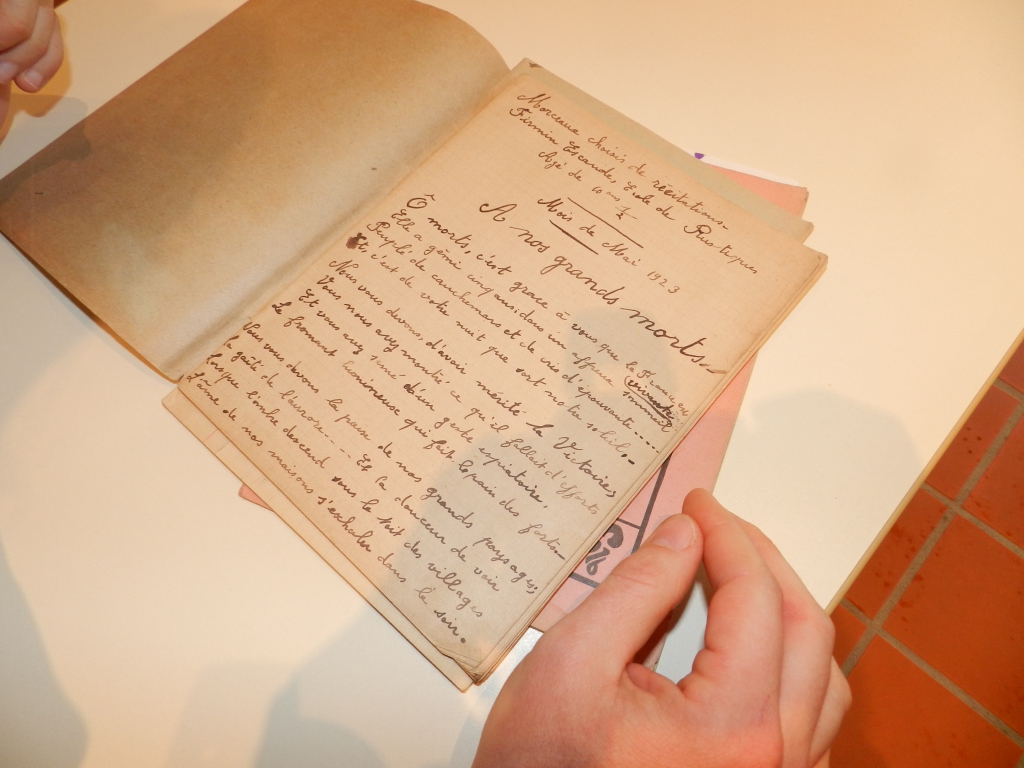 Morceaux choisis de récitations
Firmin Escande, École de Pous-
Agé de 10 ans ½
Mois de Mai 1923
A nos grands morts
Ô morts, c'est grace à vous que la France
Elle a gémi cinq ans dans un affreux
Peuplé de cauchemars et de cris d'épouvante....
Et c'est de votre nuit que sort notre soleil.
Nous vous devons d'avoir mérité la Victoire,
Vous nous avez montré ce qu'il fallait d'efforts
Et vous avez semé d'un geste expiatoire,
Le froment lumineux qui fait le pain des forts.
Vous vous devons la paix de nos grands paysages,
la gaîté de l'aurore.... Et la douceur de voir
lorsque l'ombre descend sous le toit des villages
L'âme de nos maisons s'exhaler dans le soir.